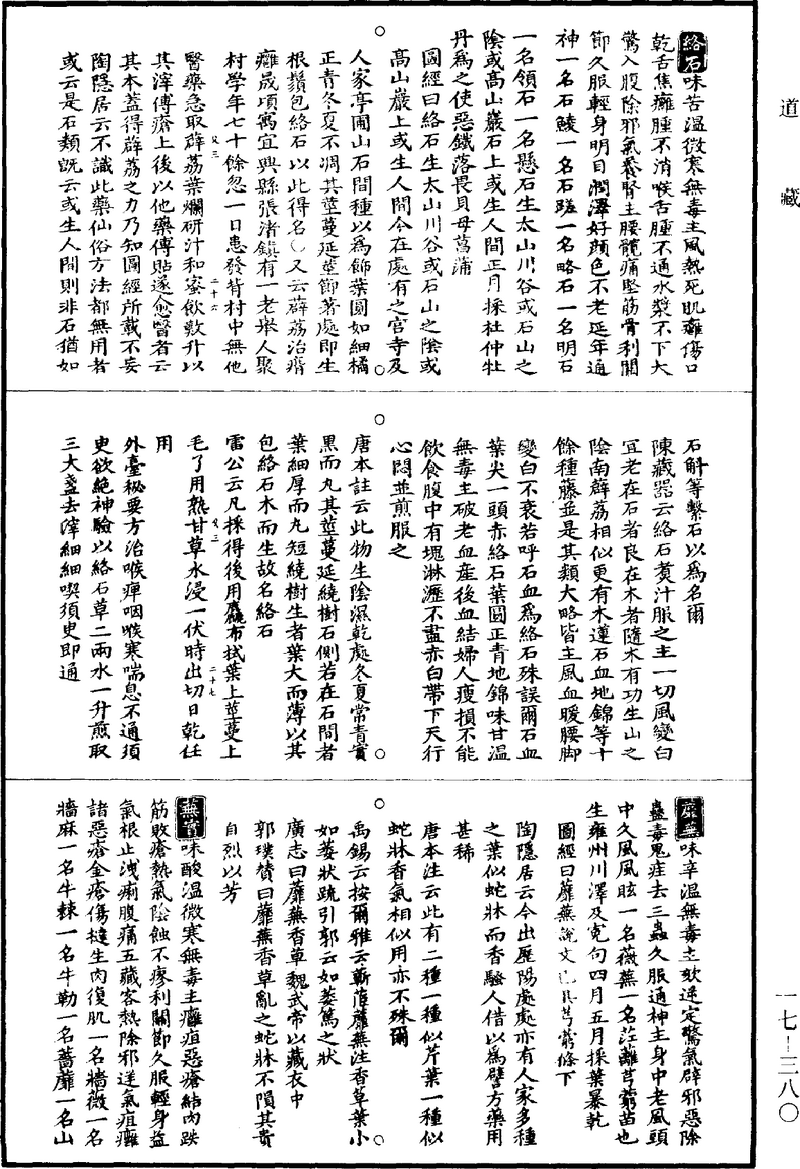 道藏
絡石味苦溫微寒無毒主風熱死肌癰傷口
乾舌焦癰腫不消喉舌腫不通水漿不下大
驚入腹除邪氣養腎主腰髖痛堅筋骨利關
節久服輕身明目潤澤好顏色不老延年通
神一名石鯪一名石蹉一名略石一名明石
一名領石一名懸石生太山川谷或石山之
陰或高山巖石上或生人間正月採杜仲牡
丹爲之使惡鐵落畏貝母菖蒲
圖經曰絡石生太山川谷或石山之陰或
高山巖上或生人間今在處有之官寺及
人家亭圃山石間種以爲飾葉圓如細橘
正青冬夏不凋其莖蔓延莖節著處即生
根鬚包絡石以此得名○又云薜荔治癰
癰晟頃寓宜興縣張渚鎮有一老舉人聚
村學年七十餘忽一日患發背村中無他
醫藥急取薜荔葉爛研汁和蜜飲數升以
其滓傅瘡上後以他藥傅貼遂愈醫者云
其本蓋得薜荔之力乃知圖經所載不妄
陶隱居云不識此藥仙俗方法都無用者
或云是石類旣云或生人間則非石猶如
石斛等繫石以爲名爾
陳藏器云絡石煑汁服之主一切風變白
宜老在石者良在木者隨木有功生山之
陰南薜荔相似更有木蓮石血地錦等十
餘種藤並是其類大略皆主風血暖腰脚
變白不衰若呼石血爲絡石殊誤爾石血
葉尖一頭赤絡石葉圓正青地錦味甘溫
無毒主破老血産後血結婦人瘦損不能
飲食腹中有塊淋瀝不盡赤白帶下天行
心悶並煎服之
唐本註云此物生陰濕乾處冬夏常青實
黑而丸其莖蔓延繞樹石側若在石間者
葉細厚而丸短繞樹生者葉大而薄以其
包絡石木而生故名絡石
雷公云凡採得後用麤布拭葉上莖蔓上
毛了用熟甘草水浸一伏時出切日乾任
用
外臺秘要方治喉痺咽喉寒喘息不通須
臾欲絕神驗以絡石草二兩水一升煎取
三大盞去滓細細喫須臾即通
蘼蕪味辛溫無毒主欬逆定驚氣辟邪惡除
蠱毒鬼疰去三蟲久服通神主身中老風頭
中久風風眩一名薇蕪一名茳蘺芎藭苗也
生雍州川澤及冤句四月五月採葉暴乾
圖經曰蘼蕪說文已具芎藭條下
陶隱居云今出歷陽處處亦有人家多種
之葉似蛇牀而香騷人借以爲譬方藥用
甚稀
唐本注云此有二種一種似芹葉一種似
蛇牀香氣相似用亦不殊爾
禹錫云按爾雅云蘄茝蘼蕪注香草葉小
如萎狀疏引郭云如萎蔫之狀
廣志曰蘼蕪香草魏武帝以藏衣中
郭璞贊曰蘼蕪香草亂之蛇牀不隕其貴
自烈以芳
味酸溫微寒無毒主癰疽惡瘡結肉跌
筋敗瘡熱氣陰蝕不瘳利關節久服輕身益
氣根止洩痢腹痛五藏客熱除邪逆氣疽癩
諸惡瘡金瘡傷撻生肉復肌一名牆薇一名
牆麻一名牛棘一名牛勒一名薔蘼一名山
一七-三八〇